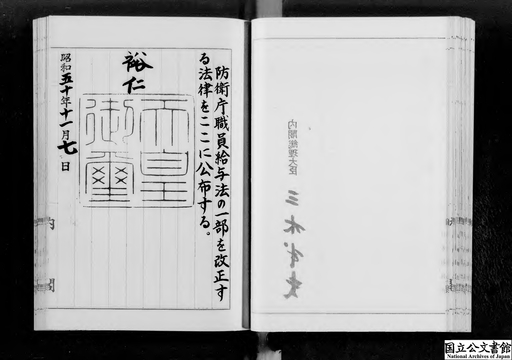 防衛庁職員給与法の一部を改正す
る法律をここに公布する。
裕仁
天皇
御璽
昭和五十年十一月七日
内閣
内閣総理大臣
三木武夫
国立公文書館
National Archives of Japan